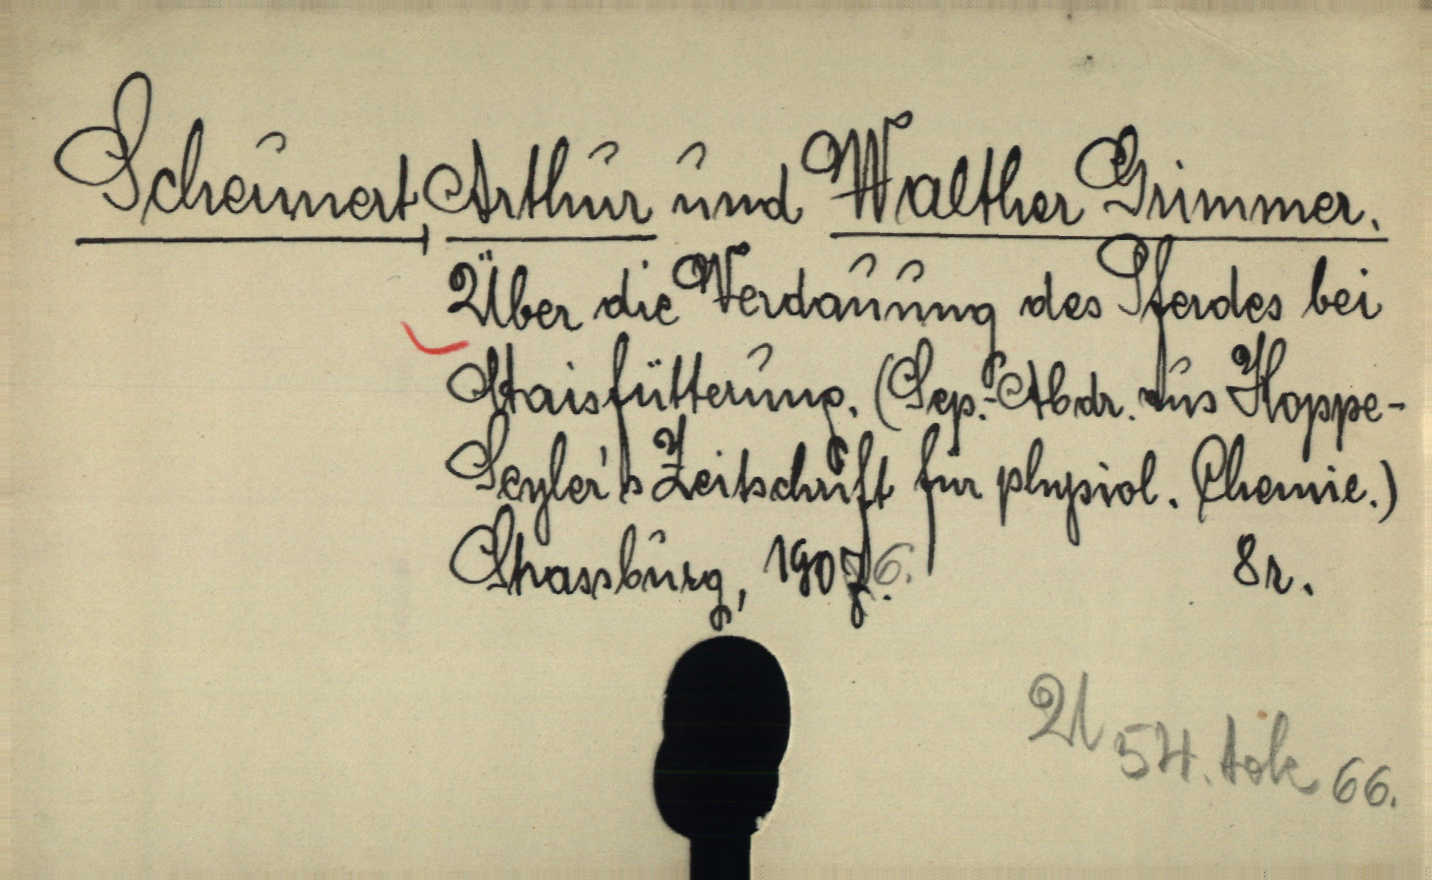 Scheunert, Arthur und Walther Grimmer.
Über die Verdauung des Pferdes bei
Maisfütterung. (Sep.-Abdr. aus Hoppe-
Seyler's Zeitschrift für physiol. Chemie.)
Strassburg, 1907. 6. 8r.
U 54. tok 66.